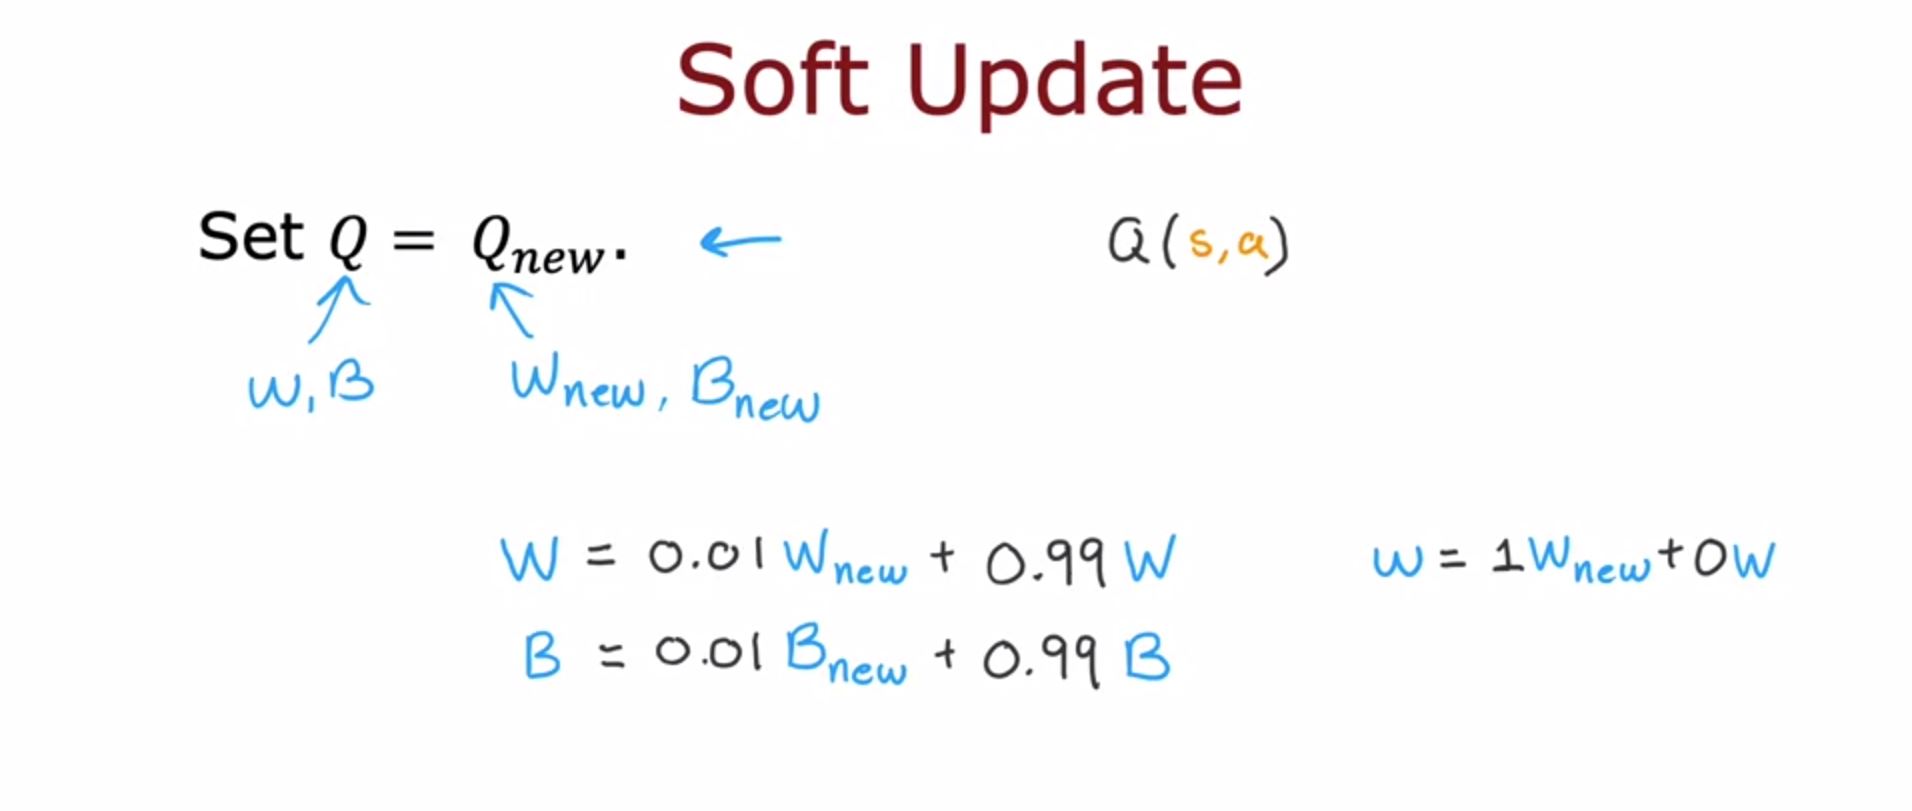 Soft Update
Set Q = Q_new. ← Q(s,a)
W,B W_new, B_new
W = 0.01 W_new + 0.99 W w = 1W_new + 0W
B = 0.01 B_new + 0.99 B